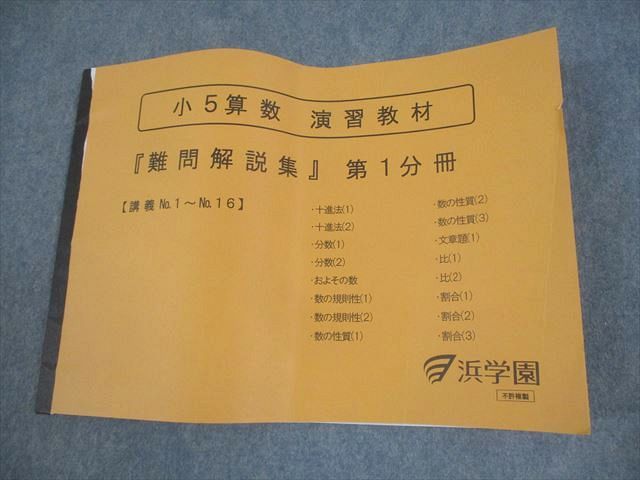 小５算数 演習教材
『難問解説集』 第１分冊
【講義 №１～№１６】
・十進法(1)
・十進法(2)
・分数(1)
・分数(2)
・およその数
・数の規則性(1)
・数の規則性(2)
・数の性質(1)
・数の性質(2)
・数の性質(3)
・文章題(1)
・比(1)
・比(2)
・割合(1)
・割合(2)
・割合(3)
浜学園
不許複製